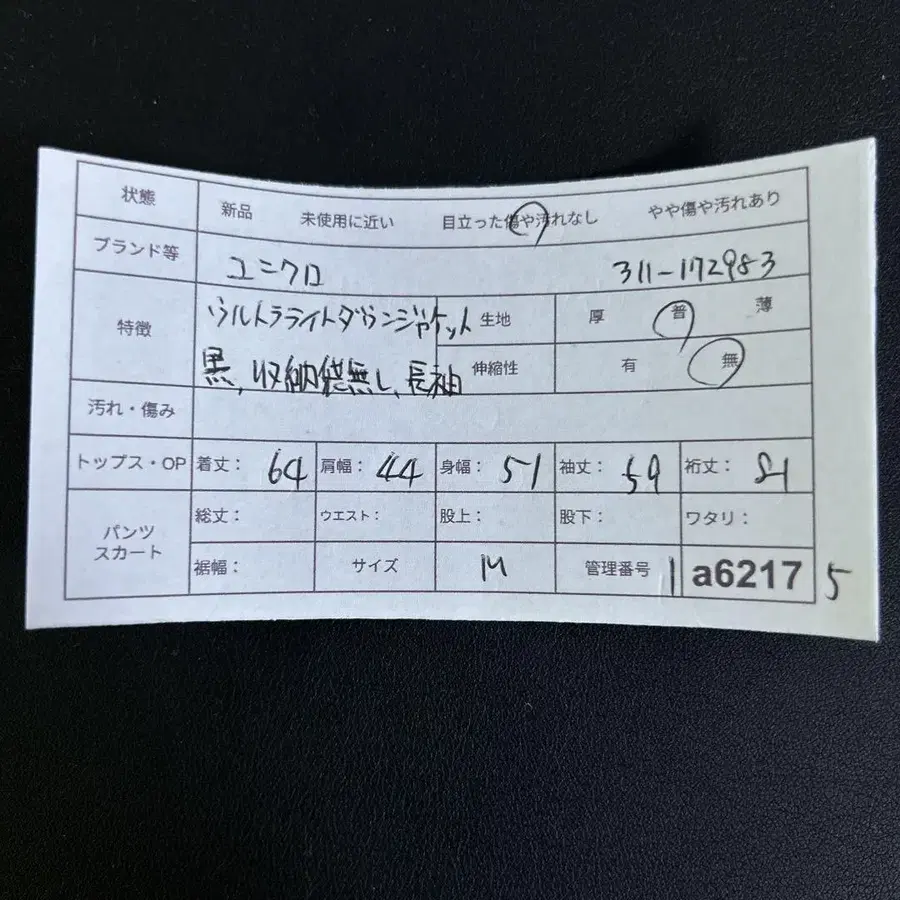 状態 新品 未使用に近い 目立った傷や汚れなし やや傷や汚れあり
ブランド等 ユニクロ 311-172983
特徴 ウルトラライトダウンジャケット 生地 厚 普 薄
黒,収納袋無し、長袖 伸縮性 有 無
汚れ・傷み
トップス・OP 着丈: 64 肩幅: 44 身幅: 51 袖丈: 59 裄丈: 81
パンツ スカート 総丈: ウエスト: 股上: 股下: ワタリ:
裾幅: サイズ M 管理番号 1 a6217 5